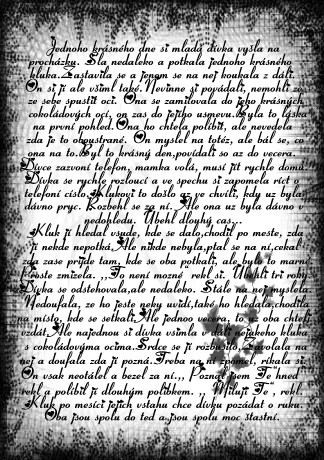 Jednoho krásného dne si mladá dívka vyšla na
procházku. Šla nedaleko a potkala jednoho krásného
kluka. Zastavila se a jenom se na nej koukala z dáli.
On si jí ale všiml také. Nevinne si povídali, nemohli ze
ze sebe spustit oci. Ona se zamilovala do jeho krásných
cokoládových ocí, on zas do jejího usmevu. Byla to láska
na první pohled. Ona ho chtela políbit, ale nevedela
zda je to oboustrané. On myslel na totéž, ale bál se, co
ona na to. Byl to krásný den, povídali so az do vecera.
Dívce zazvoní telefon, mamka volá, musí jít rychle domu.
Dívka se rychle rozloucí a ve spechu si zapomela ríct o
telefoní císlo. Klukovi to došlo az ve chvíli, kdy uz byla
dávno pryc. Rozbehl se za ní. Ale ona uz byla dávno v
nedohledu. Ubehl dlouhý cas...
Kluk jí hledal vsude, kde se dalo, chodil po meste, zda
jí nekde nepotká, Ale nikde nebyla, ptal se na ní, cekal
zda zase prijde tam, kde se oba potkali, ale bylo to marné
Proste zmizela. ,,To není mozné" rekl si. Ubehli tri roky
Dívka se odstehovala, ale nedaleko. Stále na nej myslela
Nedoufala, ze ho jeste neky uvidí, také ho hledala, chodila
na místo, kde se setkali. Ale jednou uz to oba chteli
vzdát, Ale najednou si dívka vsimla v dáli nejakeho kluka
s cokoládovýma ocima. Srdce se jí rozbušilo, Zavolala na
nej a doufala zda jí pozná. Treba na ní zpomel, ríkala si.
On vsak neotálel a bezel za ní. ,, Poznal jsem Te" hned
rekl a políbil jí dlouhým polibkem. ,, Miluji Te", rekl.
Kluk po mesíci jejich vstahu chce dívku pozádat o ruku.
Oba jsou spolu do ted a jsou spolu moc štastní.